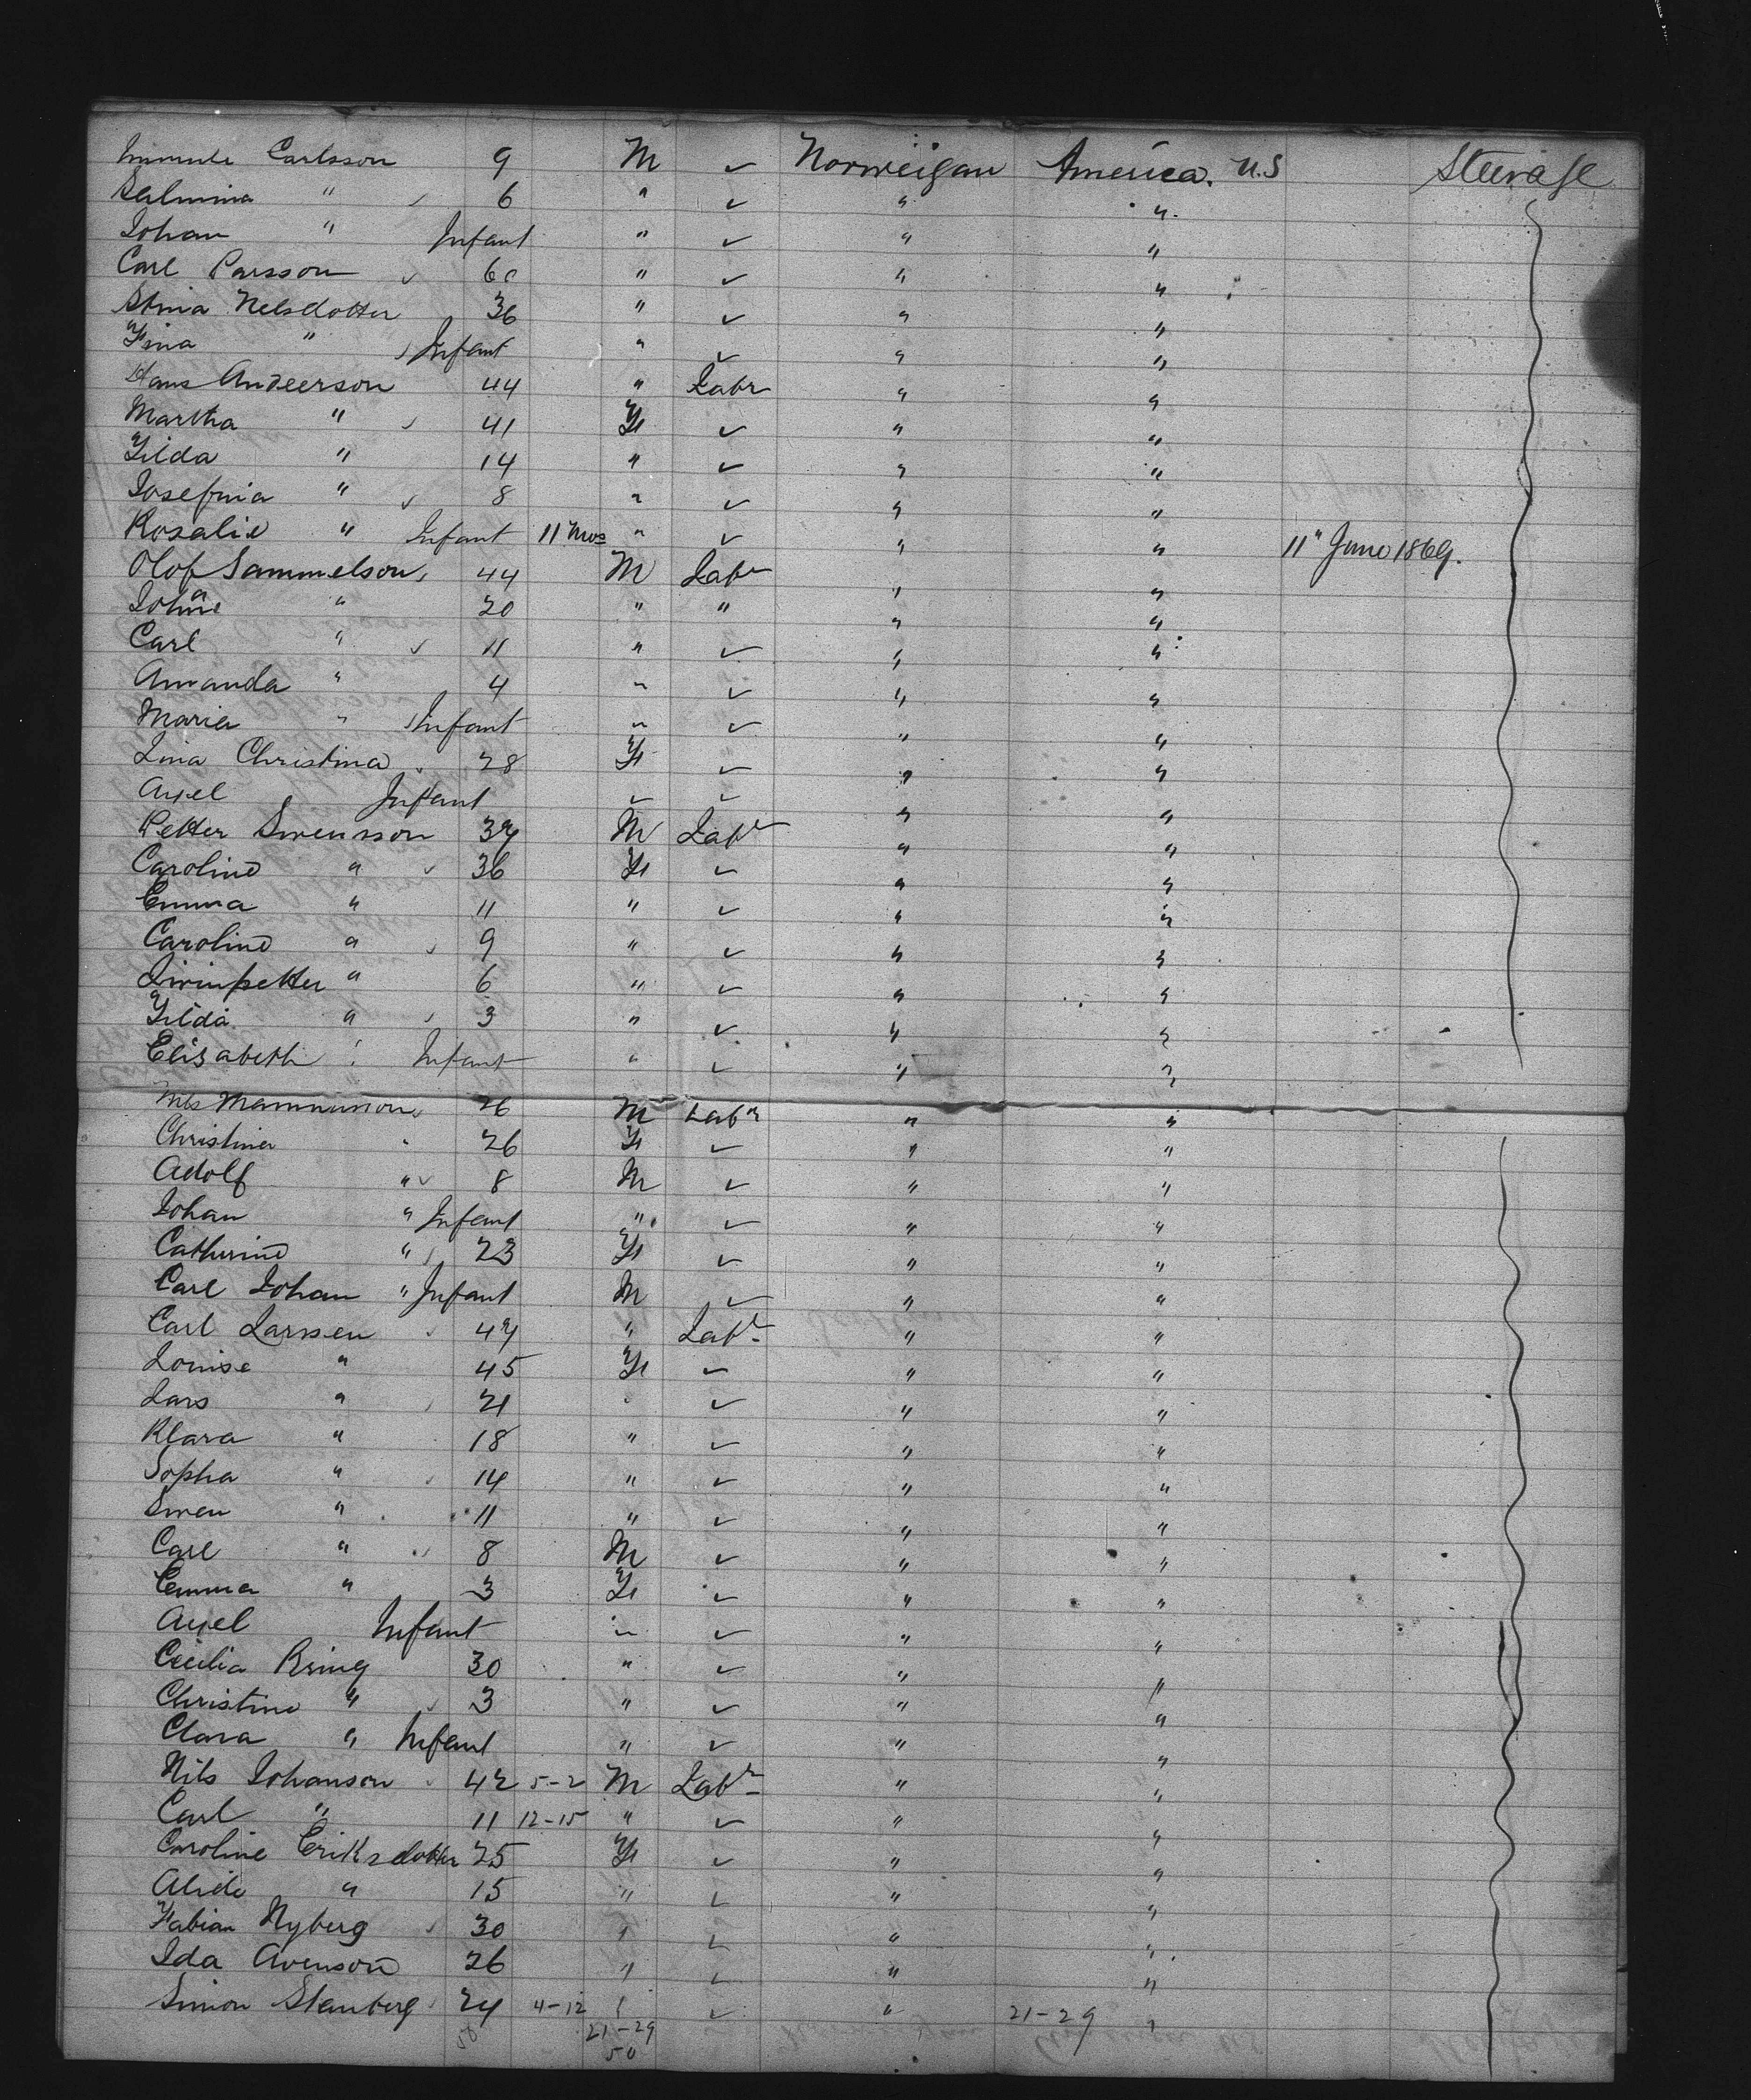 Carlsson 9 M ✓ Norweigan America. U.S Steerage
Salmina " 6 " ✓ " "
Johan " Infant " ✓ " "
Carl Parsson 60 " ✓ " "
Stina Nelsdotter 36 " ✓ " "
Fina " Infant " ✓ " "
Hans Andeerson 44 " Labr " "
Martha " 41 F ✓ " "
Hilda " 14 " ✓ " "
Josefina " 8 " ✓ " "
Rosalie " Infant 11 Mos " ✓ " " 11" June 1869.
Olof Sammelson 44 M Labr " "
" 20 " " " "
Carl " 11 " ✓ " "
Amanda " 4 " ✓ " "
Maria " Infant " ✓ " "
Lina Christina 28 F ✓ " "
Axel Infant ✓ ✓ " "
Petter Swensson 37 M Labr " "
Caroline " 36 F ✓ " "
Emma " 11 " ✓ " "
Caroline " 9 " ✓ " "
" 6 " ✓ " "
Hilda " 3 " ✓ " "
Elisabeth " Infant " ✓ " "
Nils 26 M Labr " "
Christina " 26 F ✓ " "
Adolf " 8 M ✓ " "
Johan " Infant " ✓ " "
Catherine " 23 F ✓ " "
Carl Johan " Infant M ✓ " "
Carl Larssen 47 " Labr " "
Louise " 45 F ✓ " "
Lars " 21 " ✓ " "
Klara " 18 " ✓ " "
Sopha " 14 " ✓ " "
Swen " 11 " ✓ " "
Carl " 8 M ✓ " "
Emma " 3 F ✓ " "
Axel Infant " ✓ " "
Cecilia Ring 30 " ✓ " "
Christine " 3 " ✓ " "
Clara " Infant " ✓ " "
Nils Johanson 42 5-2 M Labr " "
Carl " 11 12-15 " ✓ " "
Caroline Eriksdotter 25 F ✓ " "
" 15 " ✓ " "
Fabian Nyberg 30 " ✓ " "
Ida Avenson 26 " ✓ " "
Simon Stenberg 24 4-12 " ✓ " 21-29 "
50 21-29
50